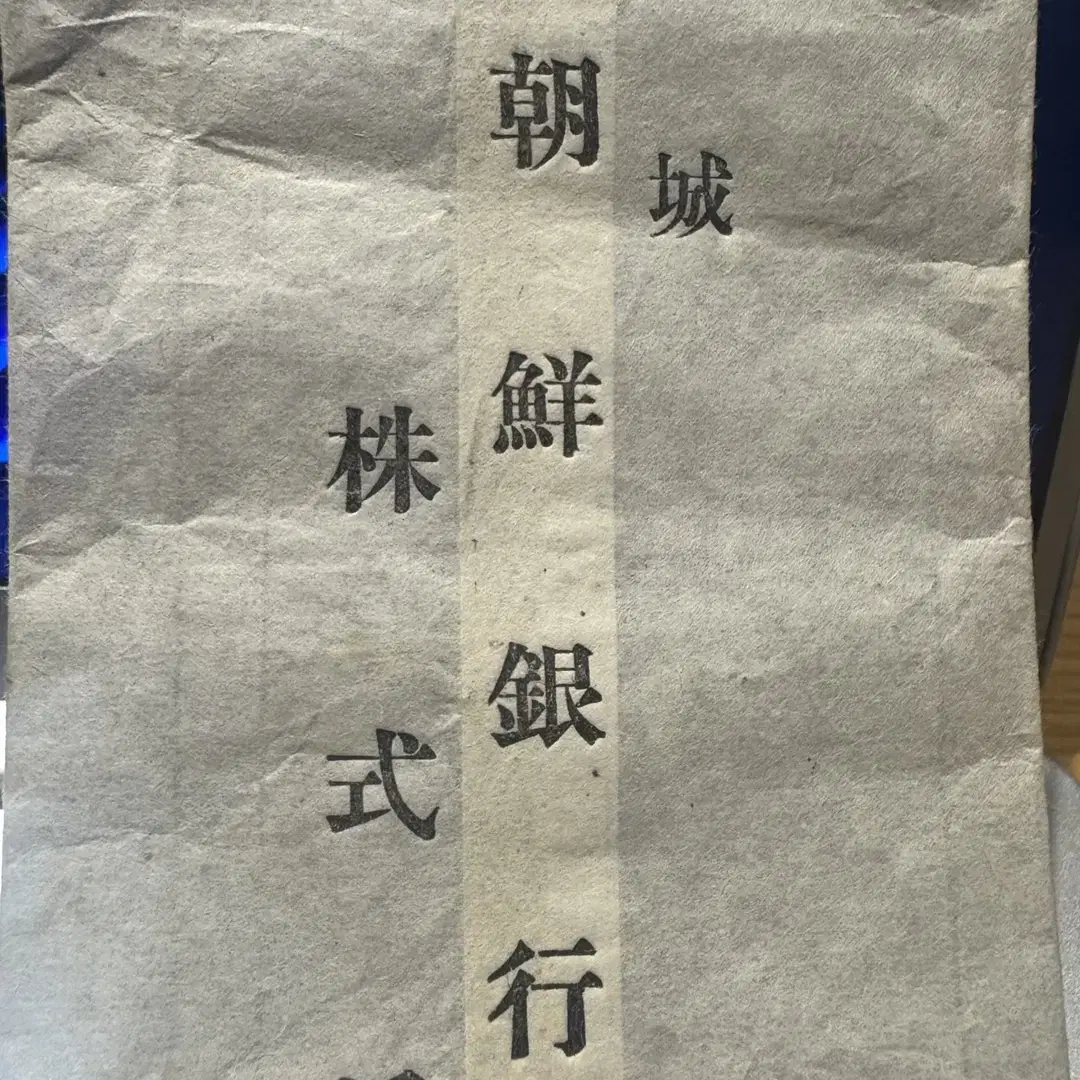 城
朝鮮銀行
株式